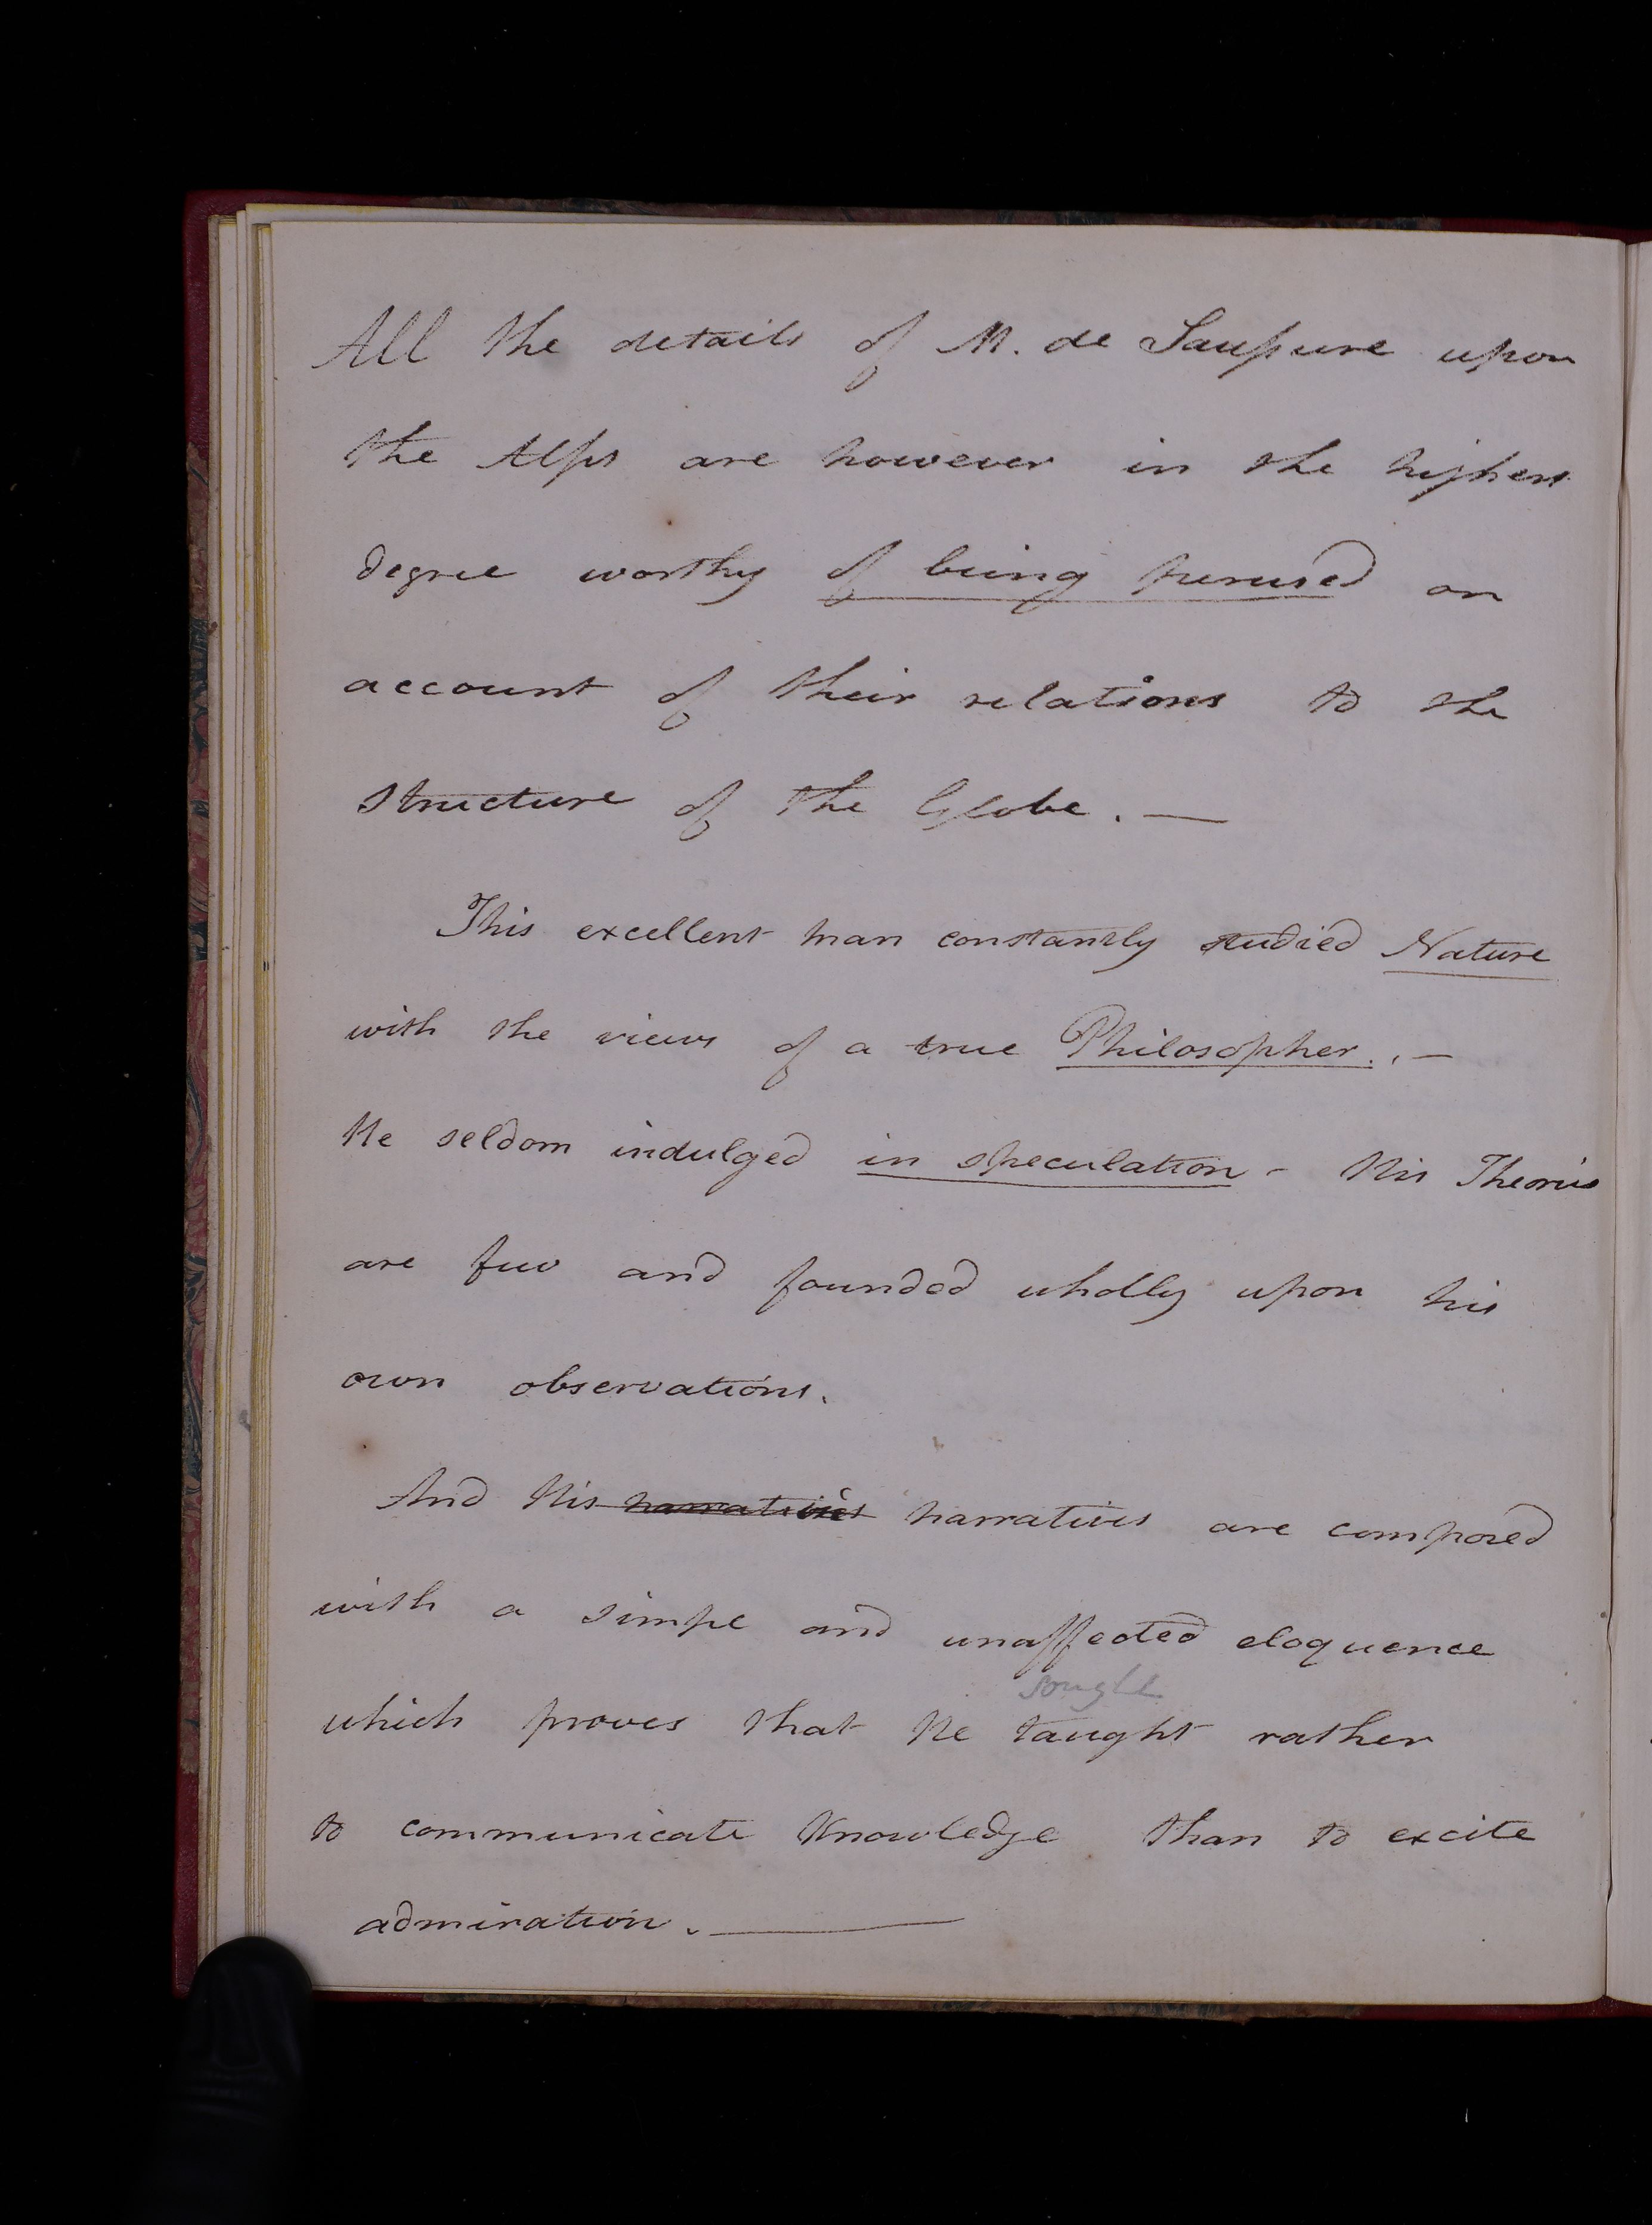 All the details of M. de Saussure upon
the Alps are however in the highest
degree worthy of being perused on
account of their relations to the
structure of the Globe. —
This excellent man constantly studied Nature
with the views of a true Philosopher. . —
He seldom indulged in speculation - His Theories
are few and founded wholly upon his
own observations.
And His narratives narratives are composed
with a simple and unaffected eloquence
sought
which proves that He taught rather
to communicate Knowledge than to excite
admiration. —